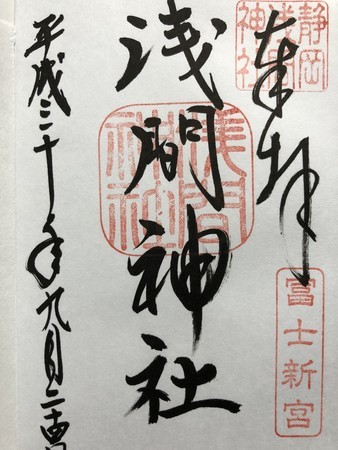 静岡
浅間
神社
奉拝
富士新宮
浅間神社
淺間
神社
平成三十年九月二十四日